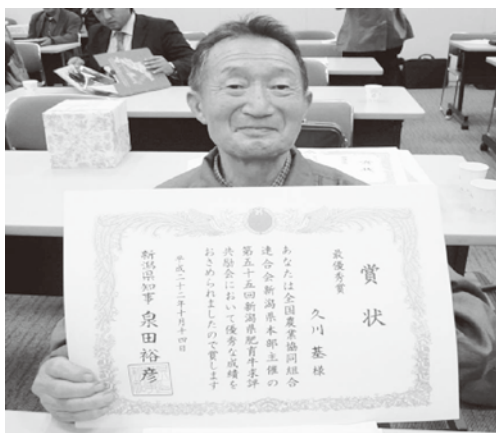 賞状
最優秀賞
久川基様
あなたは全国農業協同組合
連合会新潟県本部主催の
第五十五回新潟県肥育牛求評
共励会において優秀な成績を
おさめられましたので賞します
平成二十二年十月十四日
新潟県知事 泉田裕彦